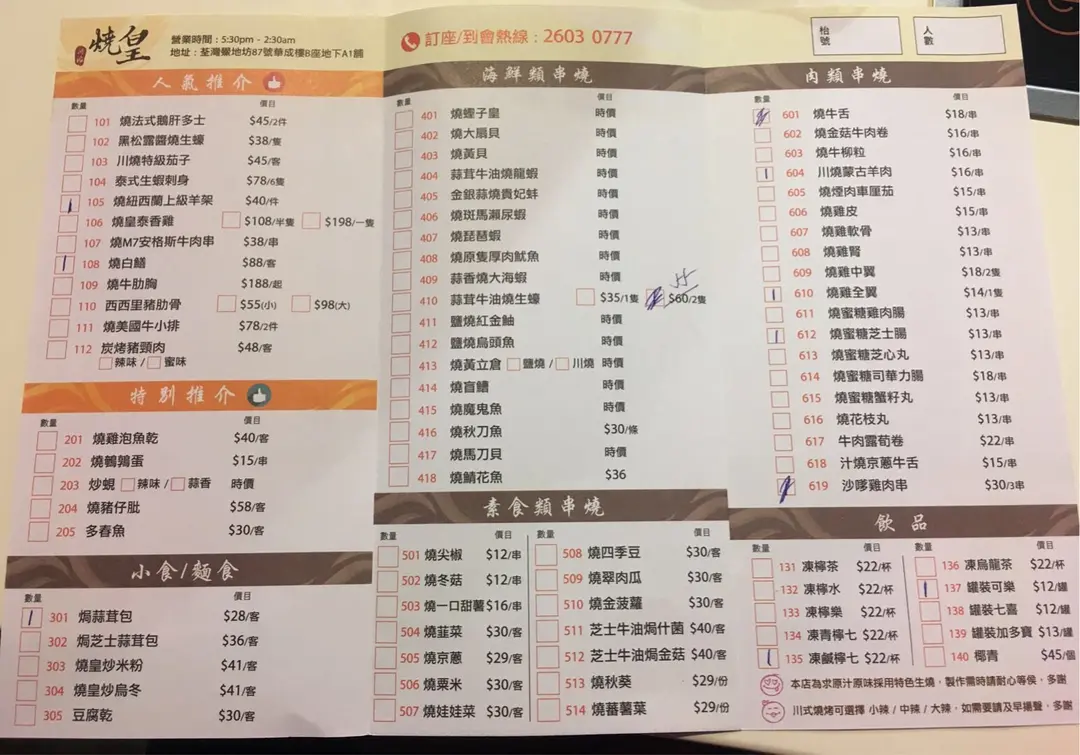 燒皇
營業時間：5:30pm - 2:30am
地址：荃灣鱟地坊87號華成樓B座地下A1舖
訂座/到會熱線：2603 0777
枱號
人數
人氣推介
數量 價目
101 燒法式鵝肝多士 $45/2件
102 黑松露醬燒生蠔 $38/隻
103 川燒特級茄子 $45/客
104 泰式生蝦刺身 $78/6隻
105 燒紐西蘭上級羊架 $40/件
106 燒皇泰香雞 $108/半隻 $198/一隻
107 燒M7安格斯牛肉串 $38/串
108 燒白鱔 $88/客
109 燒牛肋胸 $188/起
110 西西里豬肋骨 $55(小) $98(大)
111 燒美國牛小排 $78/2件
112 炭烤豬頸肉 $48/客
辣味 / 蜜味
特別推介
數量 價目
201 燒雞泡魚乾 $40/客
202 燒鵪鶉蛋 $15/串
203 炒蜆 辣味 / 蒜香 時價
204 燒豬仔肶 $58/客
205 多春魚 $30/客
小食/麵食
數量 價目
301 焗蒜茸包 $28/客
302 焗芝士蒜茸包 $36/客
303 燒皇炒米粉 $41/客
304 燒皇炒烏冬 $41/客
305 豆腐乾 $30/客
海鮮類串燒
數量 價目
401 燒蟶子皇 時價
402 燒大扇貝 時價
403 燒黃貝 時價
404 蒜茸牛油燒龍蝦 時價
405 金銀蒜燒貴妃蚌 時價
406 燒斑馬瀨尿蝦 時價
407 燒琵琶蝦 時價
408 燒原隻厚肉魷魚 時價
409 蒜香燒大海蝦 時價
410 蒜茸牛油燒生蠔 $35/1隻 $60/2隻
411 鹽燒紅金鮋 時價
412 鹽燒烏頭魚 時價
413 燒黃立倉 鹽燒 / 川燒 時價
414 燒盲鰽 時價
415 燒魔鬼魚 時價
416 燒秋刀魚 $30/條
417 燒馬刀貝 時價
418 燒鯖花魚 $36
素食類串燒
數量 價目 數量 價目
501 燒尖椒 $12/串
502 燒冬菇 $12/串
503 燒一口甜薯 $16/串
504 燒韮菜 $30/客
505 燒京蔥 $29/客
506 燒粟米 $30/客
507 燒娃娃菜 $30/客
508 燒四季豆 $30/客
509 燒翠肉瓜 $30/客
510 燒金菠蘿 $30/客
511 芝士牛油焗什菌 $40/客
512 芝士牛油焗金菇 $40/客
513 燒秋葵 $29/份
514 燒蕃薯葉 $29/份
肉類串燒
數量 價目
601 燒牛舌 $18/串
602 燒金菇牛肉卷 $16/串
603 燒牛柳粒 $16/串
604 川燒蒙古羊肉 $16/串
605 燒煙肉車厘茄 $15/串
606 燒雞皮 $15/串
607 燒雞軟骨 $13/串
608 燒雞腎 $13/串
609 燒雞中翼 $18/2隻
610 燒雞全翼 $14/1隻
611 燒蜜糖雞肉腸 $13/串
612 燒蜜糖芝士腸 $13/串
613 燒蜜糖芝心丸 $13/串
614 燒蜜糖司華力腸 $18/串
615 燒蜜糖蟹籽丸 $13/串
616 燒花枝丸 $13/串
617 牛肉露荀卷 $22/串
618 汁燒京蔥牛舌 $15/串
619 沙嗲雞肉串 $30/3串
飲品
數量 價目 數量 價目
131 凍檸茶 $22/杯
132 凍檸水 $22/杯
133 凍檸樂 $22/杯
134 凍青檸七 $22/杯
135 凍鹹檸七 $22/杯
136 凍烏龍茶 $22/杯
137 罐裝可樂 $12/罐
138 罐裝七喜 $12/罐
139 罐裝加多寶 $13/罐
140 椰青 $45/個
本店為求原汁原味採用特色生燒，製作需時請耐心等侯，多謝
川式燒烤可選擇 小辣 / 中辣 / 大辣，如需要請及早揚聲，多謝